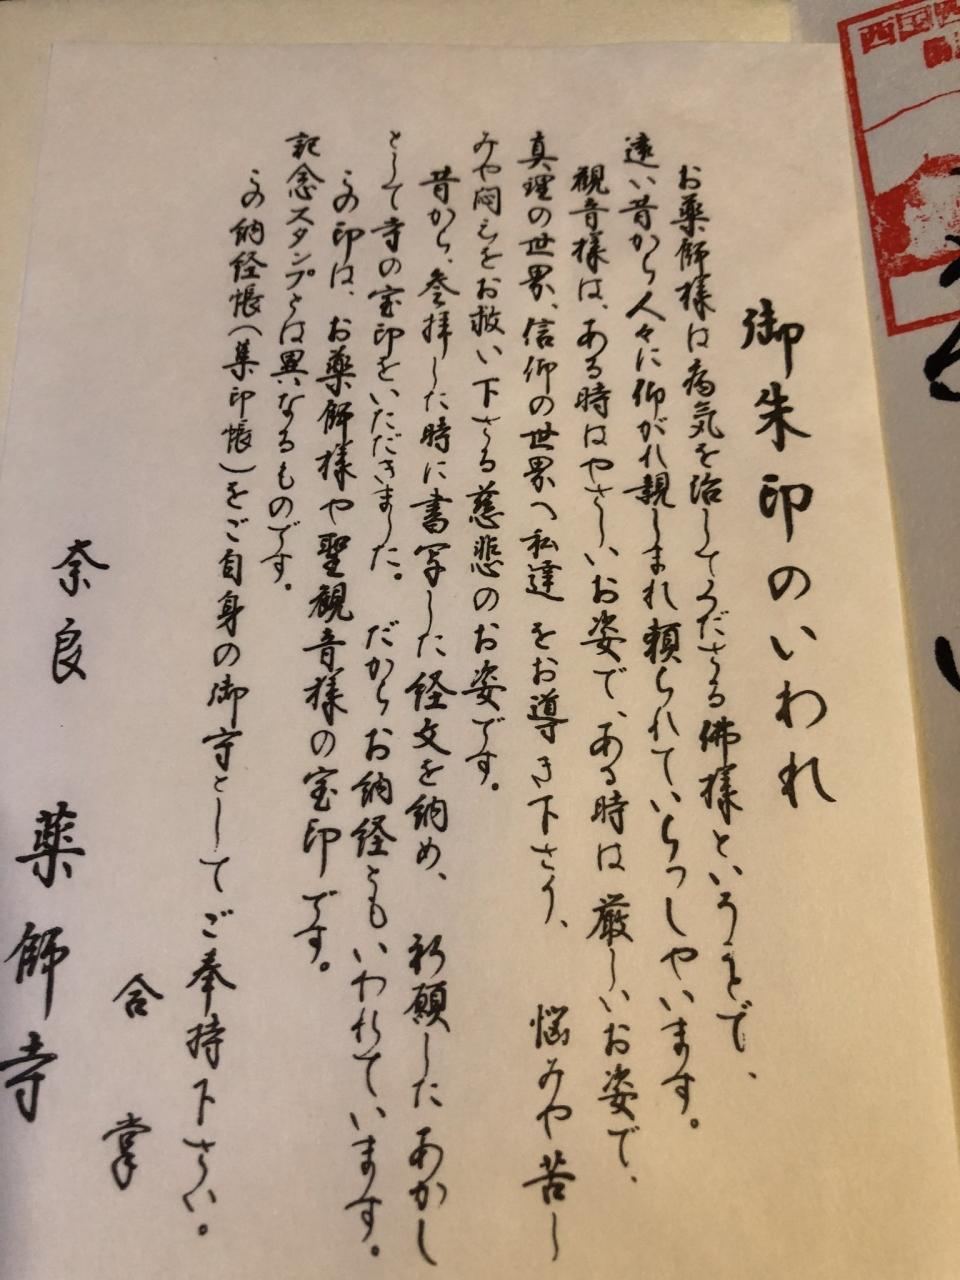 御朱印のいわれ
お薬師様は病気を治してくださる佛様ということで、
遠い昔から人々に仰がれ親しまれ頼られていらっしやいます。
観音様は、ある時はやさしいお姿で、ある時は厳しいお姿で、
真理の世界、信仰の世界へ私達をお導き下さり、悩みや苦し
みや悶えをお救い下さる慈悲のお姿です。
昔から、参拝した時に書写した経文を納め、祈願したあかし
として寺の宝印をいただきました。だからお納経ともいわれています。
この印は、お薬師様や聖観音様の宝印です。
記念スタンプとは異なるものです。
この納経帳(集印帳)をご自身の御守としてご奉持下さい。
合掌
奈良 薬師寺
西国